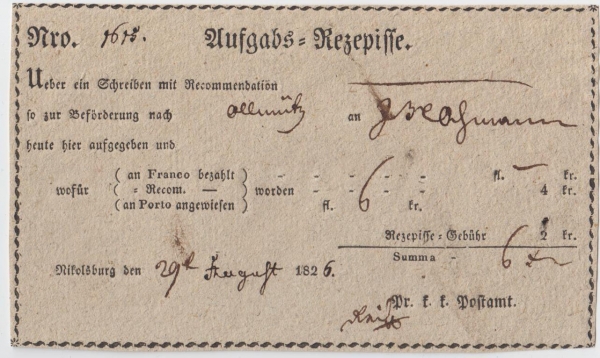 Nro. 1615. Aufgabs=Rezepisse.
Ueber ein Schreiben mit Recommendation
so zur Beförderung nach Ollmütz an
heute hier aufgegeben und
(an Franco bezahlt) - - - - fl. — kr.
wofür (= Recom. —) worden - 6 - - - 4 kr.
(an Porto angewiesen) fl. kr.
Rezepisse=Gebühr 2 kr.
Summa - 6 kr
Nikolsburg den 29t August 1826.
Pr. k. k. Postamt.